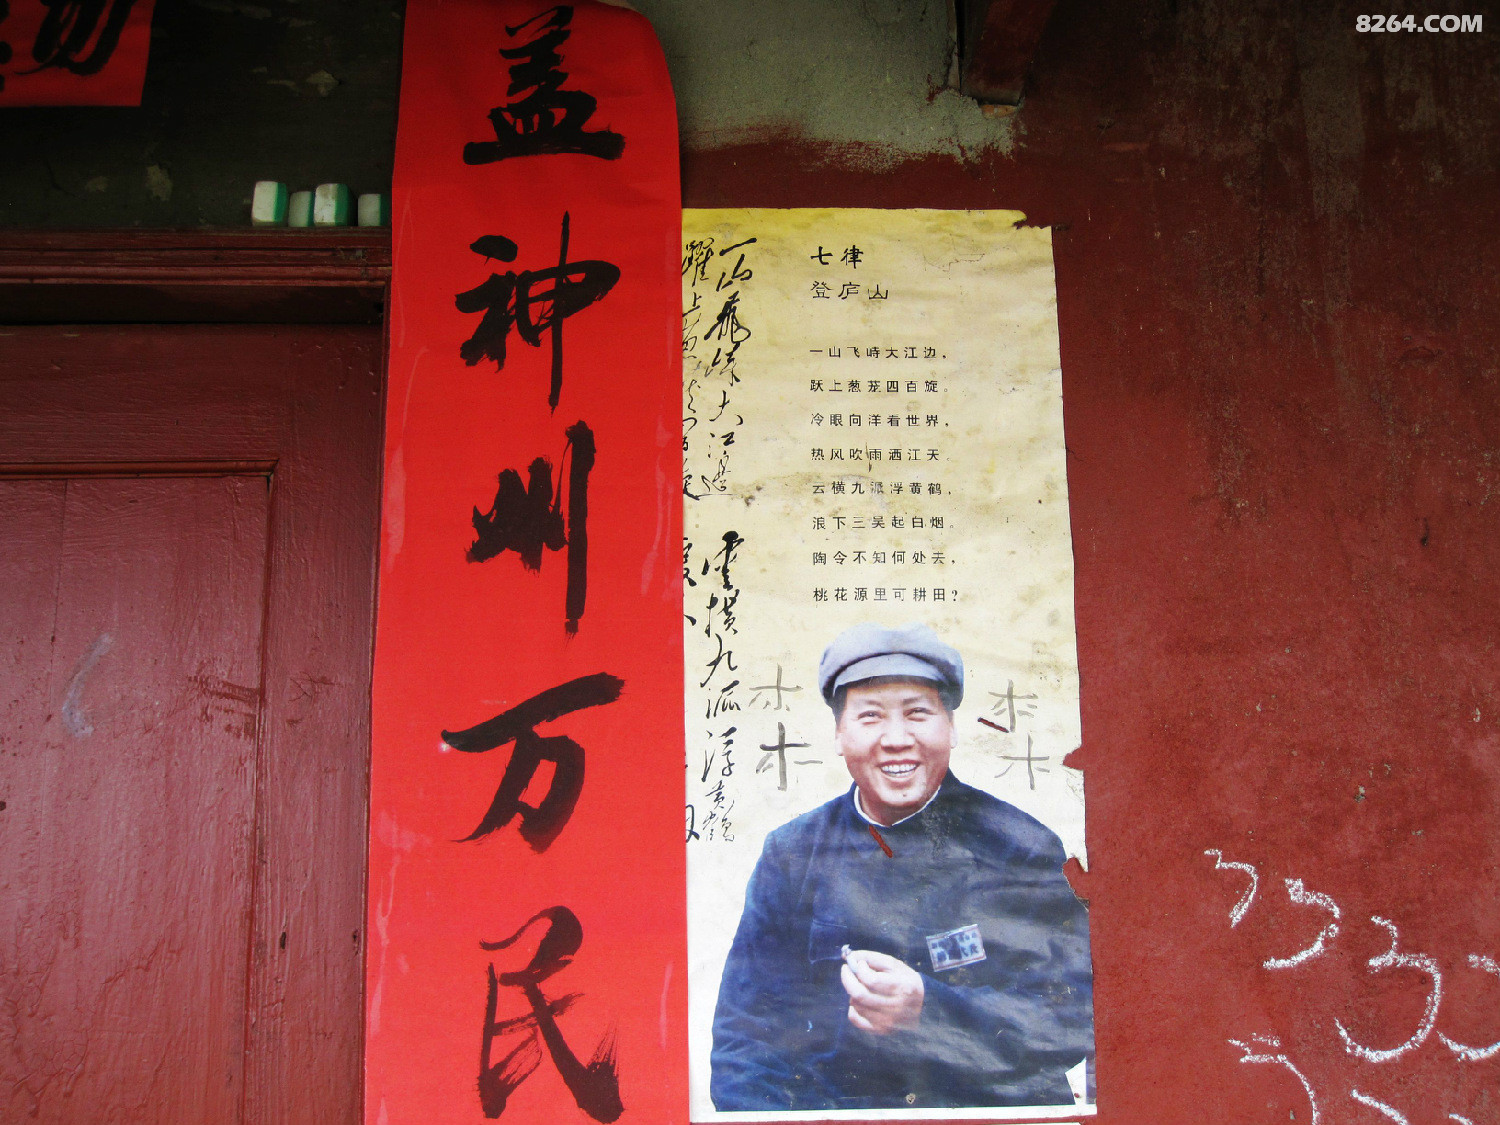 8264.COM
盖神州万民
七律
登庐山
一山飞峙大江边，
跃上葱茏四百旋。
冷眼向洋看世界，
热风吹雨洒江天。
云横九派浮黄鹤，
浪下三吴起白烟。
陶令不知何处去，
桃花源里可耕田？
一山飛峙大江邊
躍上葱蘢四百旋
雲横九派浮黄鶴